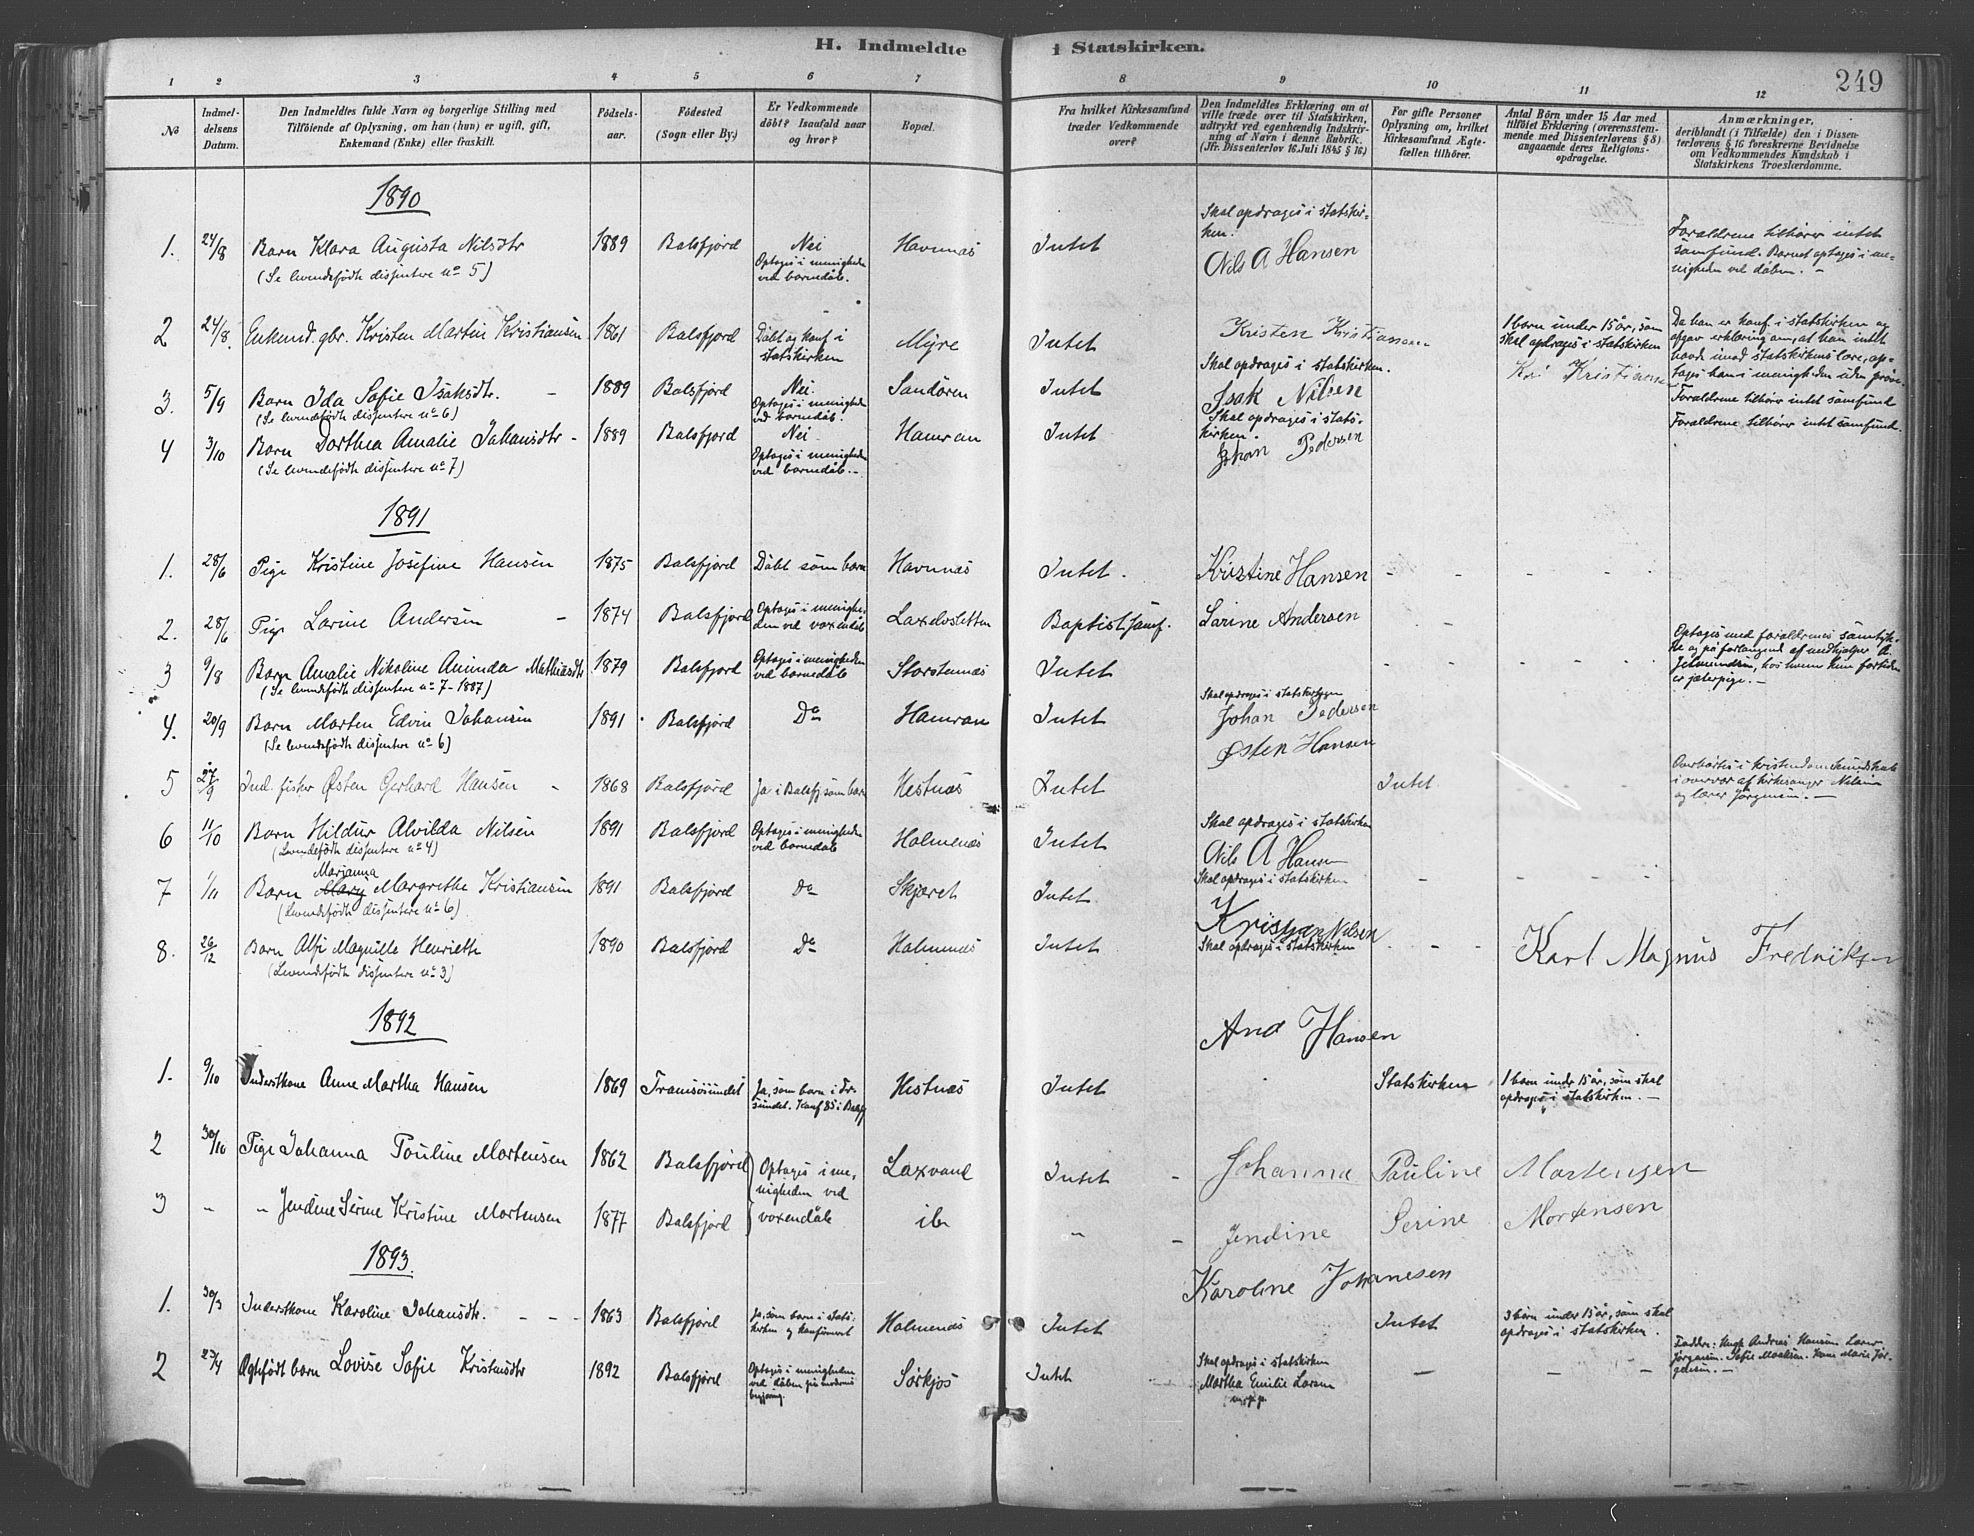 H. Indmeldte i Statskirken.
249
1 2 3 4 5 6 7 8 9 10 11 12
No
Indmeldelsens Datum.
Den Indmeldtes fulde Navn og borgerlige Stilling med
Tilföiende af Oplysning, om han (hun) er ugift, gift,
Enkemand (Enke) eller fraskilt.
Födselsaar.
Födested
(Sogn eller By.)
Er Vedkommende
döbt? Isaafald naar
og hvor?
Bopæl.
Fra hvilket Kirkesamfund
træder Vedkommende
over?
Den Indmeldtes Erklæring om at
ville træde over til Statskirken,
udtrykt ved egenhændig Indskriv-
ning af Navn i denne Rubrik.
(Jfr. Dissenterlov 16 Juli 1845 § 16.)
For gifte Personer
Oplysning om, hvilket
Kirkesamfund Ægte-
fællen tilhörer.
Antal Börn under 15 Aar med
tilföiet Erklæring (overensstem-
mende med Dissenterlovens § 8)
angaaende deres Religions-
opdragelse.
Anmærkninger,
deriblandt (i Tilfælde) den i Dissen-
terlovens § 16 foreskrevne Bevidnelse
om Vedkommendes Kundskab i
Statskirkens Troeslærdomme.
1890
1. 24/8 Barn Klara Augusta Nilsdtr 1889 Balsfjord Nei Havnnæs Intet
(Se levendefödte dissentere no 5)
Optages i menigheden
ved barnedåb.
Skal opdrages i statskir-
ken.
Nils A Hansen
Foraldrene tilhører intet
samfund. Barnet optages i me-
nigheden ved dåben. -
2 24/8. Enkemd. gbr. Kristen Martin Kristiansen 1861 Balsfjord Døbt og konf i
statskirken
Myre Intet
Kristen Kristiansen
1 barn under 15 år, som
skal opdrages i statskirken
Da han er konf. i statskirken og
afgav erklæring om, at han intet
havde imod statskirkens lære, op-
tages han i menigheden uden prøve.
3. 5/9 Barn Ida Sofie Isaksdtr. - 1889 Balsfjord Nei Sandøren Intet
(Se levendefödte dissentere no 6)
Optages i menigheden
ved barnedåb.
Skal opdrages i statskirken.
Isak Nilsen
Foraldrene tilhör intet samfund
4 3/10 Barn Dorthea Amalie Johansdtr - 1889 Balsfjord Nei Hamran Intet
(Se levendefödte dissentere no 7)
Optages i menigheden
ved barnedåb. -
Skal opdrages i stats-
kirken.
Johan Pedersen
Foraldrene tilhörer intet samfund.
1891
1. 28/6 Pige Kristine Josefine Hansen 1875 Balsfjord Döbt som barn Havnnæs Intet. Kristine Hansen
2. 28/6 Pige Larine Andersen - 1874 Balsfjord Optages i menighe-
den ved voxendåb
Laxelvsletten Baptistsamf. Larine Andersen
3 9/8 Barn Amalie Nikoline Aminda Mathiasdtr 1879 Balsfjord Optages i menigheden
ved barnedåb
Storstennæs Intet
(Se levendefödte dissentere no 7-1887)
Optages med foraldrenes samtyk-
ke og på forlangend af medhjelper A.
hos hvem hun fortiden
er jæterpige. -
4. 20/9 Barn Morten Edvin Johansen 1891. Balsfjord Do Hamran Intet
(Se levendefödte dissentere no 6)
Skal opdrages i statskirken
Johan Pedersen
5 27/9 Ind. fisker Østen Gerhard Hansen - 1868 Balsfjord Ja i Balsfj som barn Hestnæs Intet
Østen Hansen
Intet
Overhørtes i kristendomskundskab
i overvær af kirkesanger Nilsen
og lærer Jørgensen. -
6 11/10 Barn Hildur Alvilda Nilsen 1891 Balsfjord Optages i menigheden
ved barnedåb
Holmenæs Intet
(Levendefödte dissentere no 4)
Skal opdrages i statskirken
Nils A Hansen
7 1/11 Barn Mary Margrethe Kristiansen 1891 Balsfjord Do Skjæret Intet
Marianna
(Levendefödte dissentere no 6)
Skal opdrages i statskirken
Kristian Nilsen
8. 26/12 Barn Alfi Magnille Henriette 1890 Balsfjord Do Holmenæs Intet
(Levendefödte dissentere no 3)
Skal opdrages i statskirken
Karl Magnus Fredriksen
1892
And Hansen
1. 9/10 Inderstkone Anne Martha Hansen 1869 Tromsösundet Ja, som barn i Tr-
sundet. Konf 85 i Balsfj
Hestnæs Intet Statskirken
1 barn under 15 år, som skal
opdrages i statskirken. -
2 30/10 Pige Johanna Pouline Mortensen 1862 Balsfjord Optages i me-
nigheden ved
voxendåb
Laxvand Intet - Johanna Pauline Mortensen
3 " " Jendine Serine Kristine Mortensen 1877 Balsfjord ib " - Jendine Serine Mortensen
1893.
Karoline Johanesen
1. 30/3 Inderstkone Karoline Johansdtr. - - - 1863 Balsfjord Ja, som barn i stats-
kirken og konfirmert
Holmenæs Intet Intet
3 børn under 15 år, som skal
opdrages i statskirken.
2 23/4 Ægtefødt barn Lovise Sofie Kristensdtr 1892 Balsfjord Optages i menigheden
ved dåben på moderens
begjæring.
Sørkjos Intet
Skal opdrages i statskirken
Martha Emilie Larsen
m. p. p.
Faddere: Andreas Hansen. Lærer
Jørgensen. Sofie Kone Marie Jør-
gensen. -